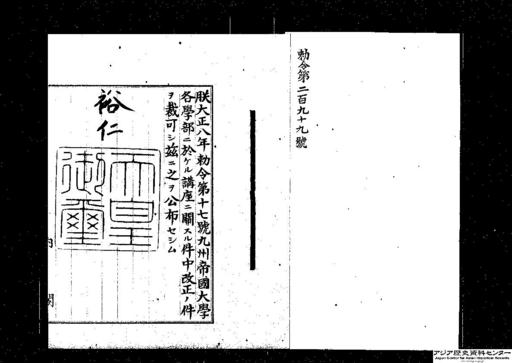 勅令第二百九十九號
朕大正八年勅令第十七號九州帝國大學
各學部ニ於ケル講座ニ關スル件中改正ノ件
ヲ裁可シ茲ニ之ヲ公布セシム
裕仁
天皇
御璽
内閣
アジア歴史資料センター
Japan Center for Asian Historical Records